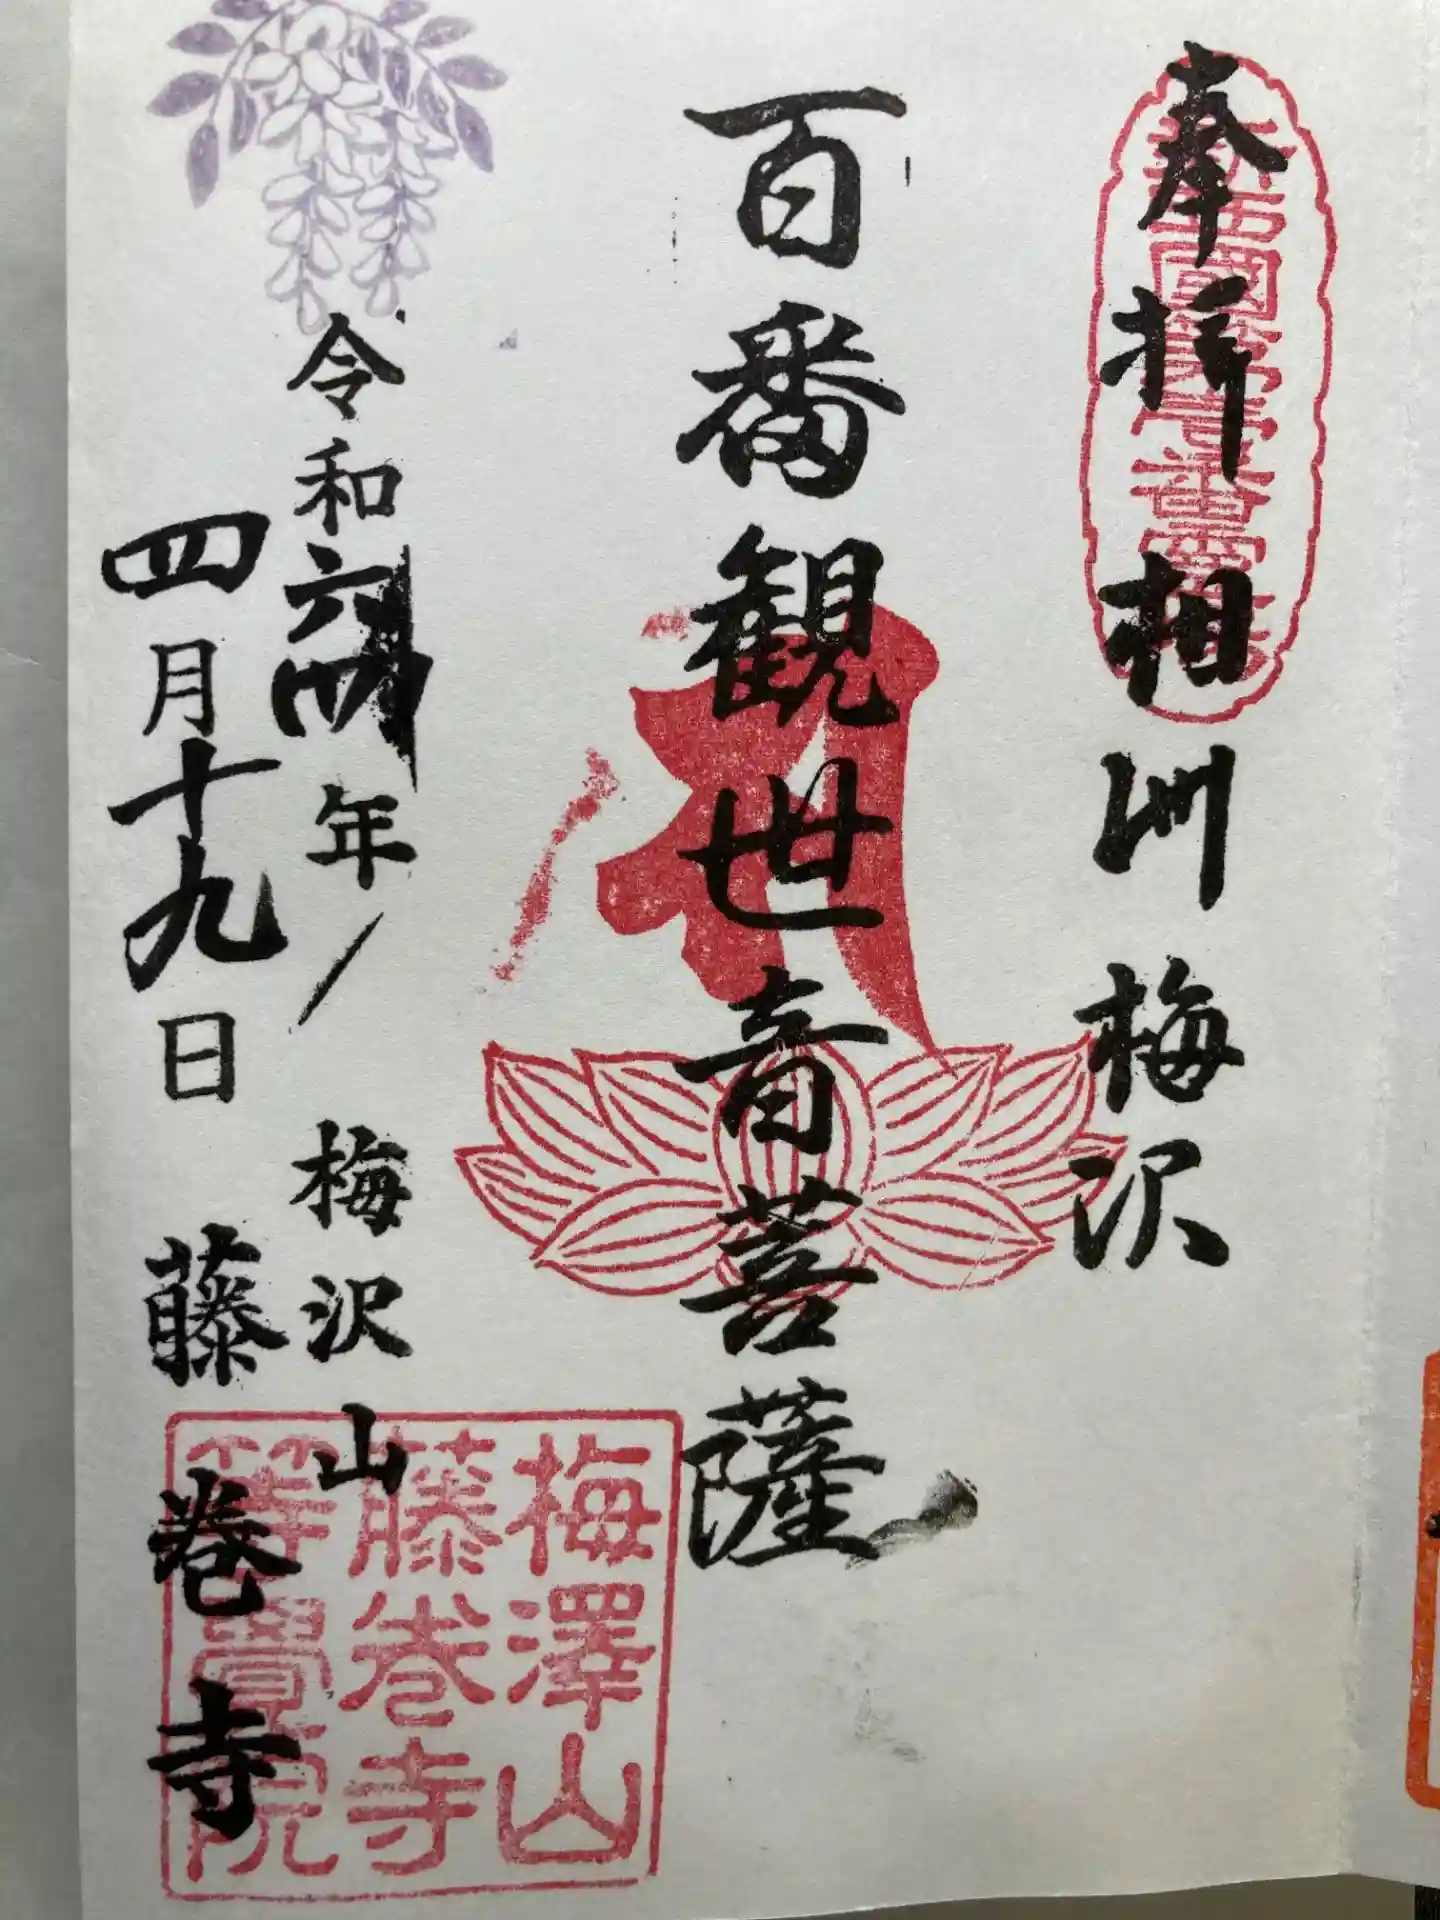 奉拝 相州梅沢
百番観世音菩薩
令和六年
梅沢山
四月十九日
藤巻寺
梅澤山
藤巻寺
等覺院